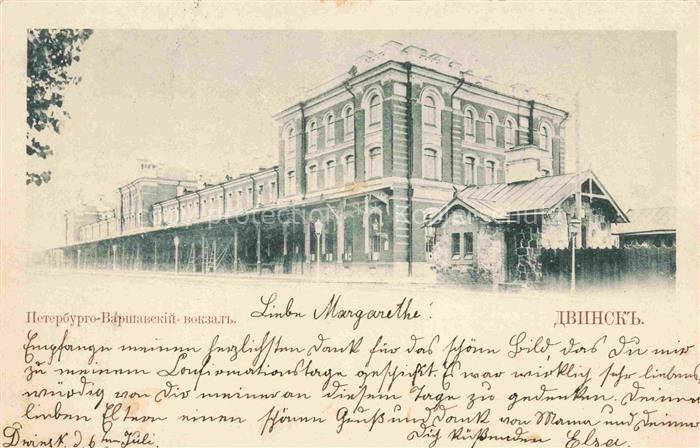 Петербурго-Варшавскій вокзалъ.
ДВИНСКЪ.
Liebe Margarethe!
Empfange meinen herzlichsten Dank für das schöne Bild, das Du mir
zu meinem Confirmationstage geschickt. Es war wirklich sehr liebens
würdig von Dir meiner an diesem Tage zu gedenken. Deinen
lieben Eltern einen schönen Gruß und Dank von Mama und Deiner
Dich küßenden Elsa.
Dwinsk, d. 6ten Juli.